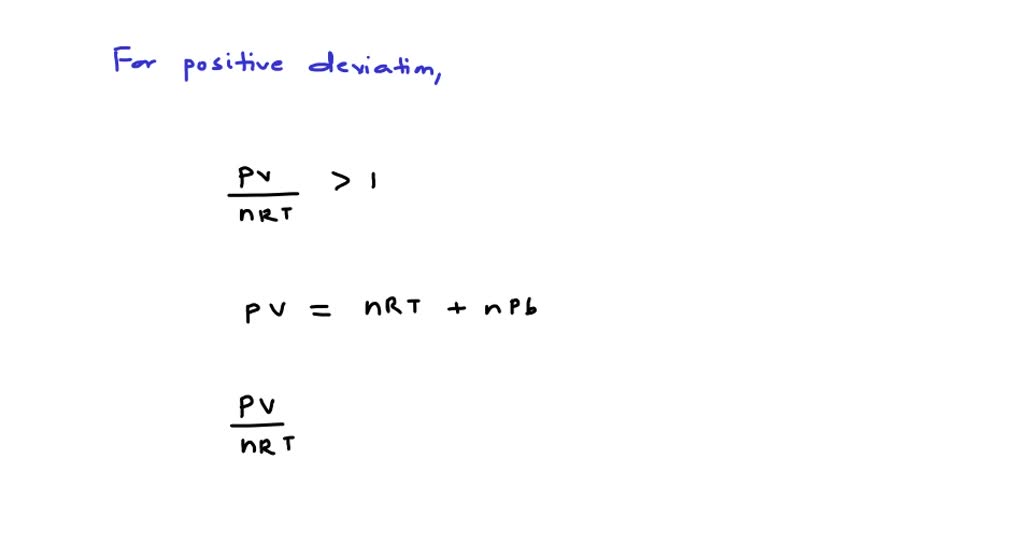 For positive deviation,
PV
nRT
> 1
PV = nRT + nPb
PV
nRT